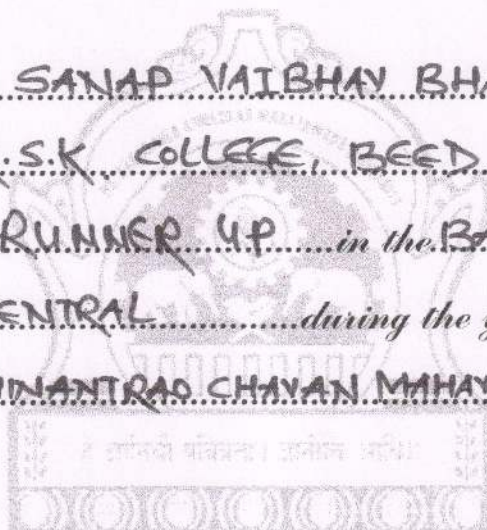 SANAP VAIBHAV BHA
.S.K. COLLEGE, BEED
RUNNER UP in the BA
ENTRAL during the y
CHAVAN MAHAV